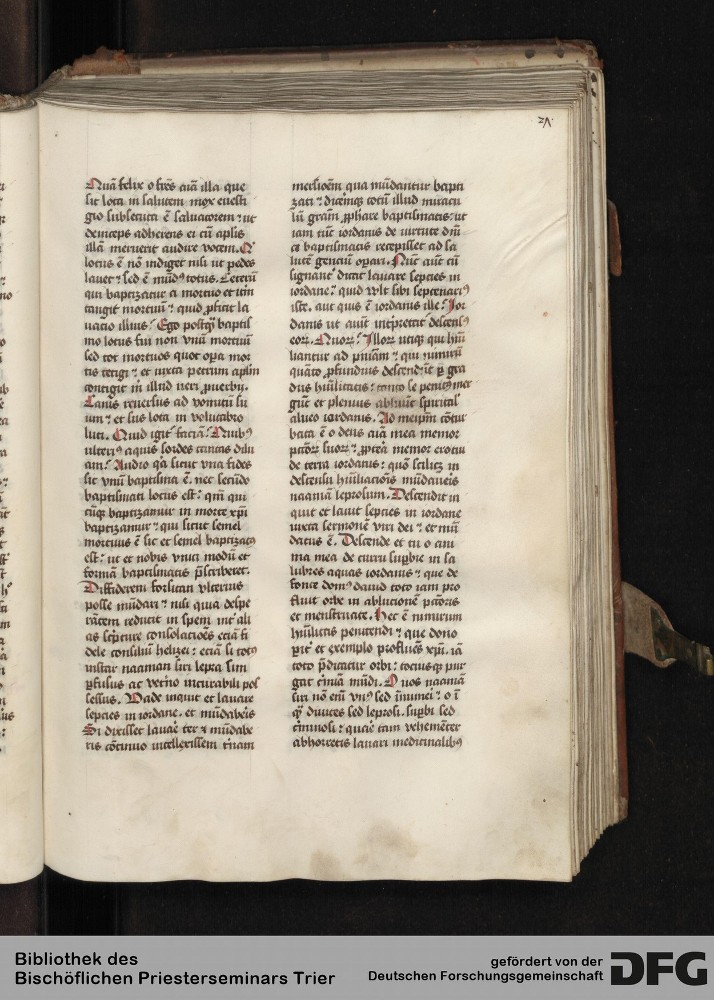 Quā felix o frēs aīa illa que
sic lota in salutem mox euesti
gio subsecuta ē saluatorem ⁊ ut
deinceps adherens ei cū aplīs
illā meruerit audire vocem. Q
locus ē nō indiget nisi ut pedes
lauet ⁊ sed ē mūdꝰ totus. Ceterū
qui baptizatur a mortuo et itm̄
tangit mortuū ⁊ quid ꝓficit la
uacio illius? Ego postqꝫ baptis
mo lotus fui non vnū mortuū
sed tot mortuos quot oꝑa mor
tis tetigi ⁊ et iuxta petrum aplm̄
contigit m̄ illud ueri ꝓuerbij.
Canis reuersus ad vomitū su
um ⁊ et sus lota in volutabro
luti. Quid igit̄ faciā? Quibꝰ
ulteriꝰ aquis sordes tantas dilu
am? Audio qꝫ sicut vna fides
sic vnū baptisma ē. nec secūdo
baptismati locus est: qm̄ qui
cūqꝫ baptizamur in morte xpī
baptizamur ⁊ qui sicut semel
mortuus ē sic et semel baptizatꝰ
est: ut et nobis vnici modū et
formā baptismatis p̄scriberet.
Diffiderem forsitan vlterius
posse mūdari ⁊ nisi quia despe
rātem reducit in spem
as scripture consolacioēs eciā fi
dele consiliū helizei: eciā si totꝰ
instar naaman siri lepra sim
ꝑfusus ac vetn̄o incurabili pos
sessus. Vade inquit et lauare
septies in iordane. et mūdabeis
Si dixisset lauare ter ⁊ mūdabe
ris cōtinuo intellexissem trinam
mersioēm qua mūdantur bapti
zati ⁊ dicemqꝫ totū illud miracu
lū grām ꝓphare baptismatis: ut
iam tūc iordanis de uirtute dnī
ci baptismatis recepisset ad sa
lutē genciū oꝑari. Nūc aūt cū
signant̄ dicit lauare septies in
iordane: quid vlt sibi septenariꝰ
iste. aut quis ē iordanis ille? Ior
danis ut aiūt int̄pretat̄ descensꝰ
eoꝝ. Quoꝝ? Illoꝝ utiqꝫ qui hūi
liantur ad pn̄iam ⁊ qui nimirū
quāto ꝓfundius descendūt ꝑ gra
dus hūilitatis: tanto se penitꝰ mer
gūt et plenius abluūt spirituali
alueo iordanis. Ad meipm̄ cōtur
bata ē o deus aīa mea memor
pctōꝝ suoꝝ ⁊ ꝓpterea memor ero tui
de terra iordanis: quō scilicet in
descensu hūiliacōis mūdaueris
naamā leprosum. Descendit in
quit et lauit septies in iordane
iuxta sermonē viri dei ⁊ et mū
datus ē. Descende et tu o ani
ma mea de curru suꝑbie in sa
lubres aquas iordanis ⁊ que de
fonte domꝰ dauid toto iam pro
fluit orbe in ablucionē pctōris
et menstruate. Hec ē nimirum
hūilitas penitendi ⁊ que dono
parit̄ et exemplo profluēs xpī. iā
toto p̄dicatur orbi: totiusqꝫ pur
gat crimina mūdi. O uos naamā
siri nō enī vnꝰ sed inumeri ⁊ o ī
qꝫ diuites sed leprosi. suꝑbi sed
criminosi: quare tam vehemēter
abhorretis lauari medicinalibꝰ
Bibliothek des
Bischöflichen Priesterseminars Trier
gefördert von der
Deutschen Forschungsgemeinschaft
DFG